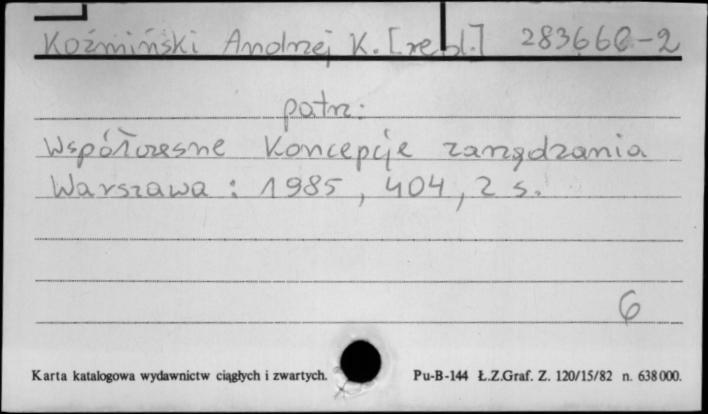 Koźmiński Andrzej K. [red.] 283660-2
patrz:
Współczesne Koncepcje zarządzania
Warszawa : 1985, 404, 2 s.
6
Karta katalogowa wydawnictw ciągłych i zwartych. Pu-B-144 Ł.Z.Graf. Z. 120/15/82 n. 638000.